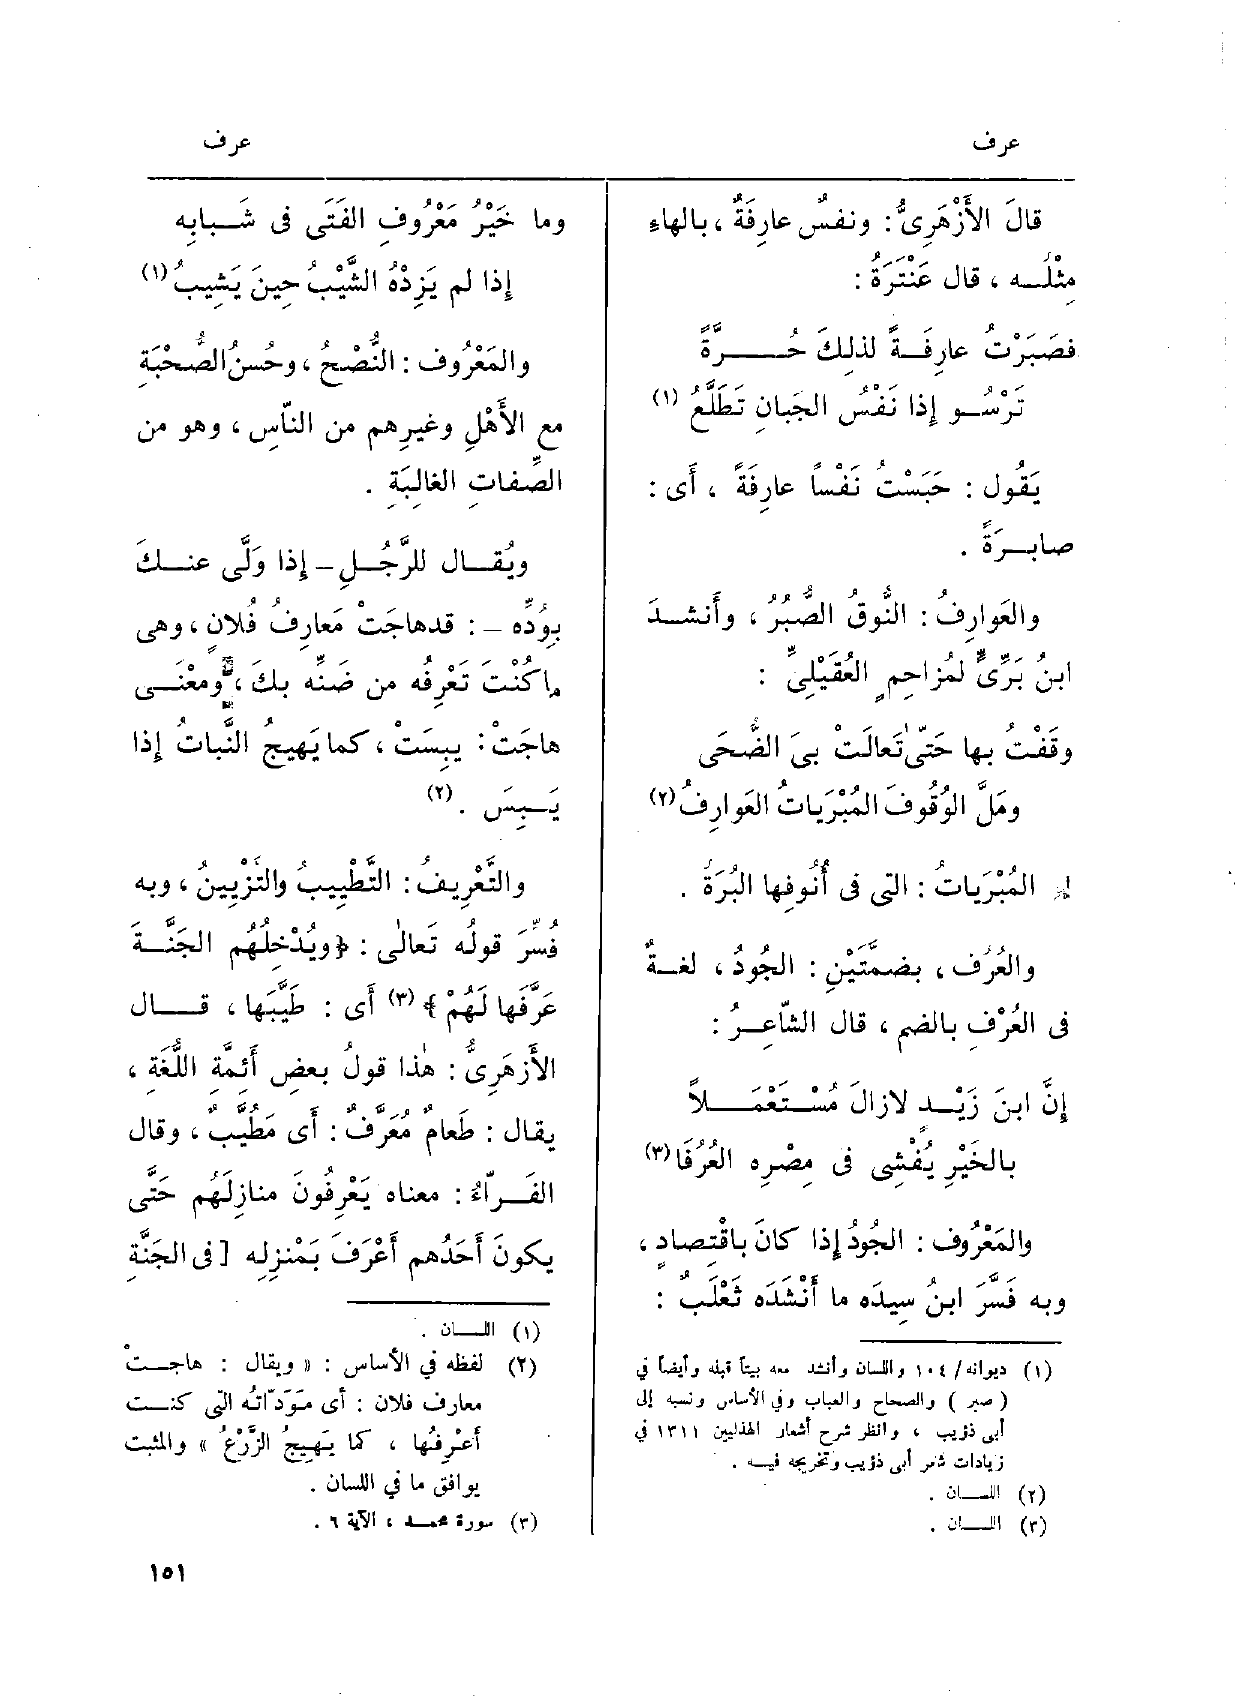 عرف
عرف
قالَ الأَزْهَرِىُّ : ونفسٌ عارِفَةٌ ، بالهاءِ
مِثْلُـــه ، قال عَنْتَرَةُ :
فصَبَرْتُ عارِفَـةً لذلكَ حُـــــرَّةً
تَرْسُــو إذا نَفْسُ الجَبانِ تَطَلَّعُ (١)
يَقُول : حَبَسْتُ نَفْساً عارِفَةً ، أَى :
صابِـــرَةً .
والعَوارِفُ : النُّوقُ الصُّبُرُ ، وأَنشـدَ
ابنُ بَرِّىٍّ لمُزاحِمٍ العُقَيْلِىِّ :
وقَفْتُ بها حَتّٰى تَعالَتْ بِىَ الضُّحَى
ومَلَّ الوُقُوفَ المُبْرَياتُ العَوارِفُ (٢)
المُبْرَياتُ : التى فى أُنُوفِها البُرَةُ .
والعُرُف ، بضمَّتَيْنِ : الجُودُ ، لغــةٌ
فى العُرْفِ بالضم ، قال الشّاعِــرُ :
إنَّ ابنَ زَيْــدٍ لازالَ مُسْــتَعْمَــــلاً
بالخَيْرِ يُفْشِى فى مِصْرِه العُرُفَا (٣)
والمَعْرُوف : الجُودُ إذا كانَ باقْتِصادٍ ،
وبه فَسَّرَ ابنُ سِيدَه ما أَنْشَدَه ثَعْلَبٌ :
(١) ديوانه / ١٠٤ واللسان وأنشد معه بيتاً قبله وأيضاً في
( صبر ) والصحاح والعباب وفي الأساس ونسبه إلى
أبى ذؤيب ، وانظر شرح أشعار الهذليين ١٣١١ في
زيادات شعر أبى ذؤيب وتخريجه فيـــه .
(٢) اللســـان .
(٣) اللســـان .
وما خَيْرُ مَعْرُوفِ الفَتَى فى شَــبابِه
إذا لم يَزِدْهُ الشَّيْبُ حِينَ يَشِيبُ (١)
والمَعْرُوف : النُّصْحُ ، وحُسنُ الصُّحْبَةِ
مع الأَهْلِ وغيرِهم من النّاسِ ، وهو من
الصِّفاتِ الغالِبَةِ .
ويُقــال للرَّجُــلِ – إذا وَلَّى عنــكَ
بوُدِّه – : قد هاجَتْ مَعارِفُ فُلانٍ ، وهى
ما كُنْتَ تَعْرِفُه من ضَنِّه بكَ ، ومعْنَــى
هاجَتْ : يبِسَتْ ، كما يَهِيجُ النَّباتُ إذا
يَــبِسَ . (٢)
والتَّعْرِيفُ : التَّطْيِيبُ والتَّزْيِينُ ، وبه
فُسِّرَ قولُه تَعالٰى : ﴿ ويُدْخِلُهُم الجَنَّــةَ
عَرَّفَها لَهُمْ ﴾ (٣) أَى : طَيَّبَها ، قـــال
الأَزهَرِىُّ : هٰذا قولُ بعضِ أَئِمَّةِ اللُّغَةِ ،
يقال : طَعامٌ مُعَرَّفٌ : أَى مُطَيَّبٌ ، وقال
الفَــرّاءُ : معناه يَعْرِفُونَ منازِلَهُم حَتَّى
يكونَ أَحَدُهم أَعْرَفَ بمَنْزِلِه [ فى الجَنَّةِ
(١) اللســـان .
(٢) لفظه في الأساس : « ويقال : هاجـــتْ
معارف فلان : أى مَوَدّاتُه التى كنـــت
أعْرِفُها ، كما يَهِيجُ الزَّرْعُ » والمثبت
يوافق ما في اللسان .
(٣) سورة محمـــد ، الآية ٦ .
١٥١